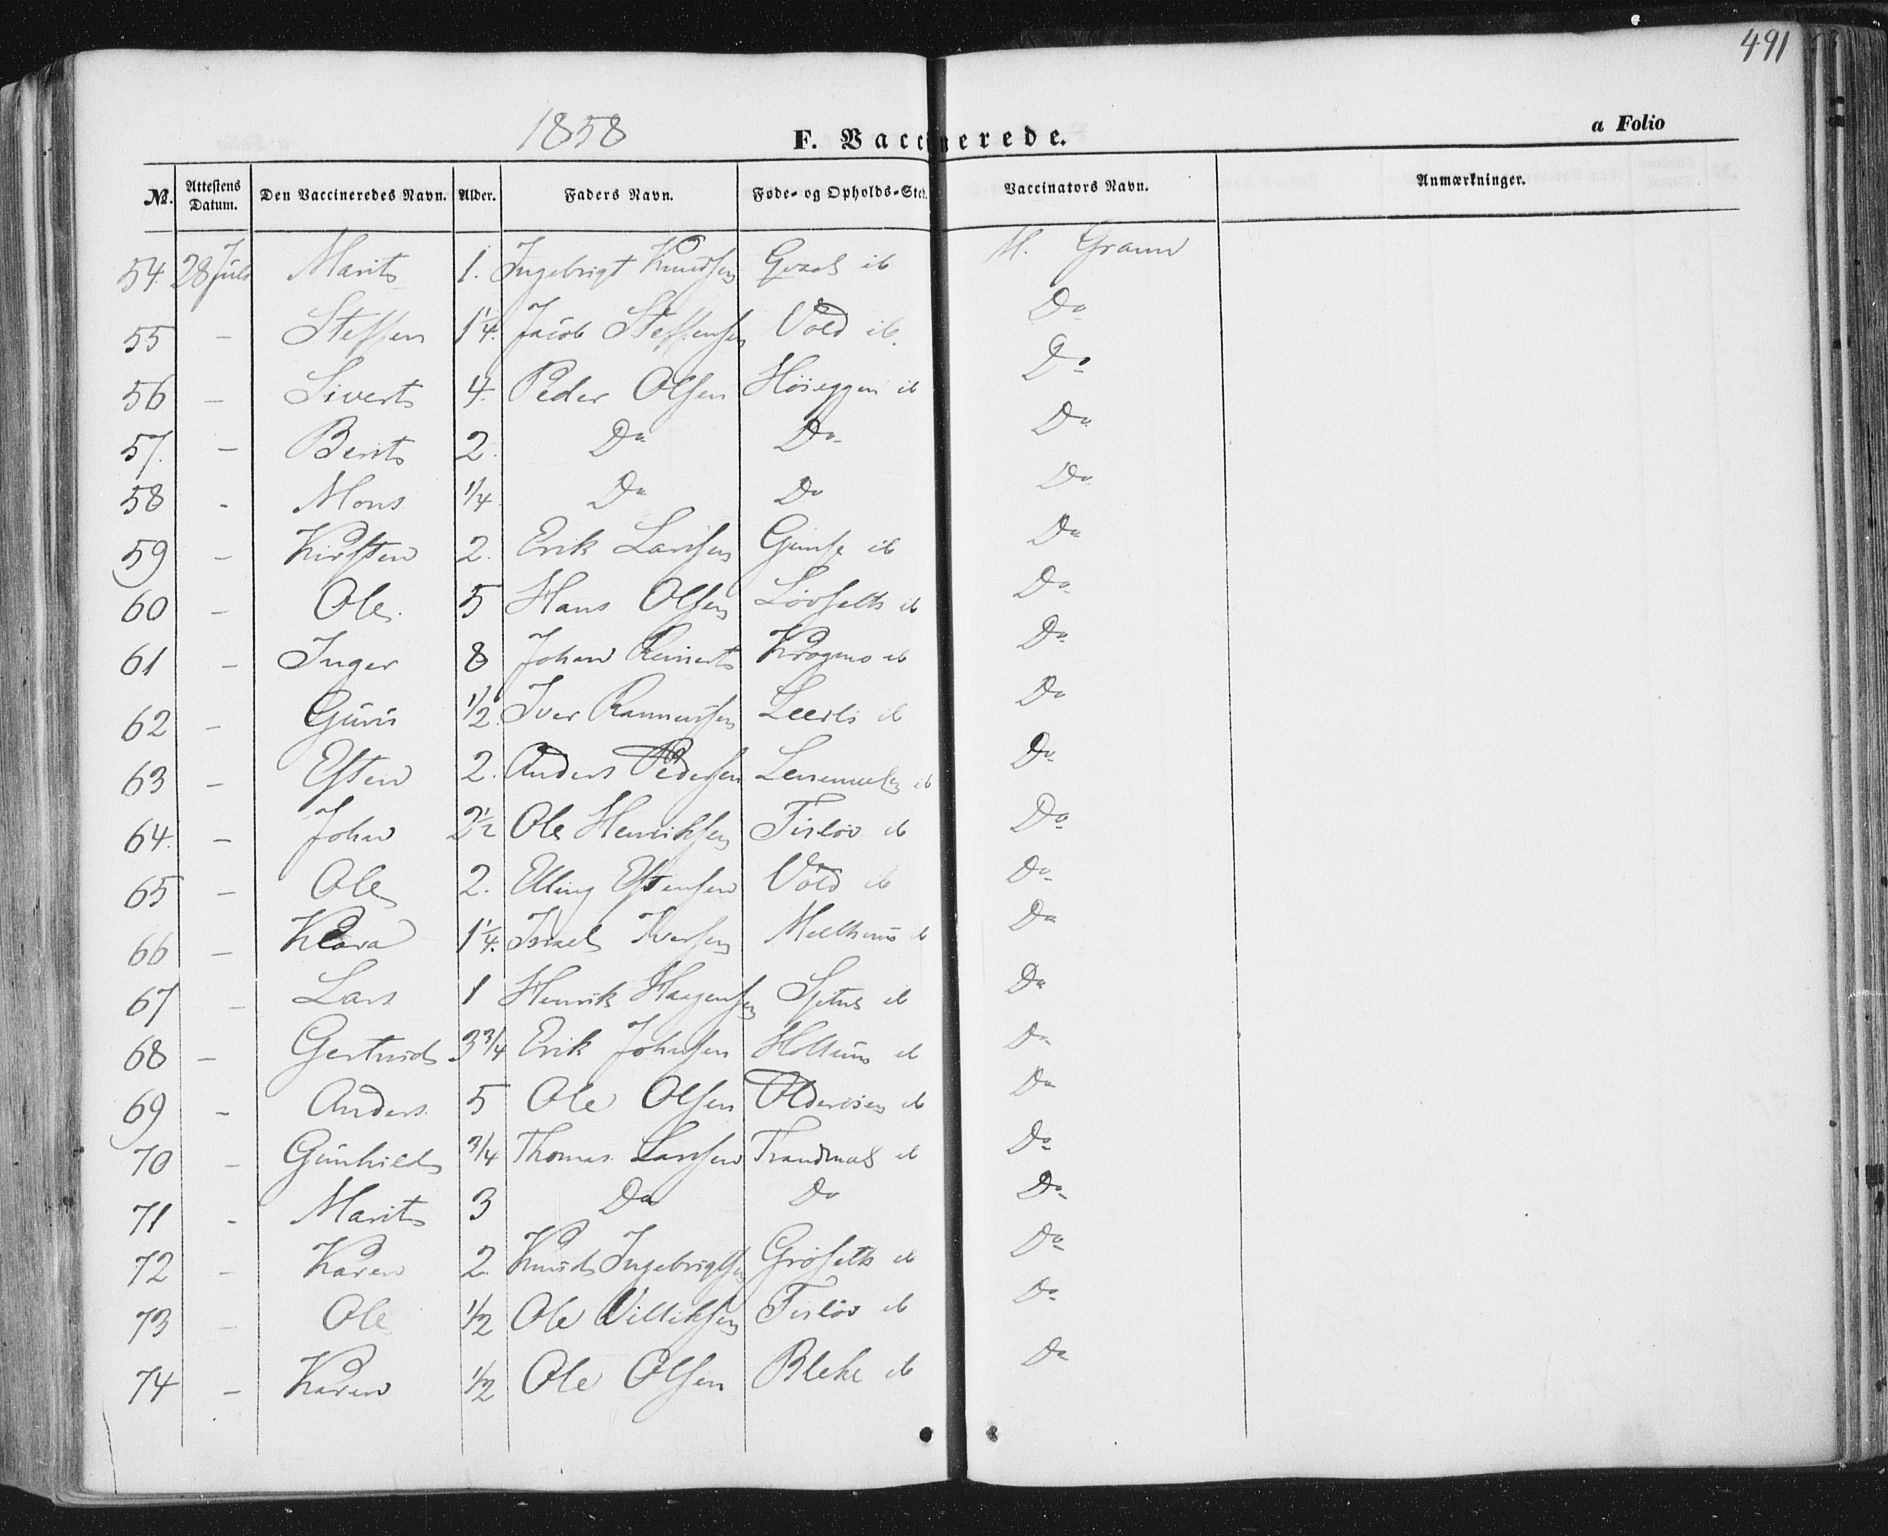 491
1858
F. Vaccinerede.
a Folio
No. Attestens Datum. Den Vaccineredes Navn. Alder. Faders Navn. Føde- og Opholds-Sted. Vaccinators Navn. Anmærkninger.
54. 28 Juli Marit 1. Ingebrigt Knudsen Qvaal ib M. Graun
55 - Steffen 1 1/4. Jacob Steffensen Vold ib. Do
56 - Sivert 4. Peder Olsen Høieggen ib Do
57. - Berit 2. Do Do Do
58 - Mons 1/4 Do Do Do
59 - Kirsten 2. Erik Larsen Gimse ib Do
60 - Ole. 5 Hans Olsen Løvseth ib Do
61 - Inger 8 Johan Reinerts Krogmo ib Do
62 - Guri 1/2 Iver Rasmussen Leerli ib Do
63 - Esten 2. Anders Pedersen ib Do
64. - John 2 1/2 Ole Henriksen Tisløv ib Do
65 - Ole 2. Elling Estensen Vold ib Do
66 - Klara 1 1/4. Israel Iversen Melhuus ib Do
67 - Lars 1 Henrik Haagensen ib Do
68 - Gertrud 3 3/4 Erik Johnsen Holthuus ib Do
69 - Anders 5 Ole Olsen ib Do
70 - Gunhild 3/4 Thomas Larsen Trandmal ib Do
71 - Marit 3 Do Do Do
72 - Karen 2. Knud Ingebrigtsen Grøseth ib Do
73 - Ole 1/2 Ole Villiksen Tisløv ib Do
74 - Karen 1/2 Ole Olsen Bleke ib Do